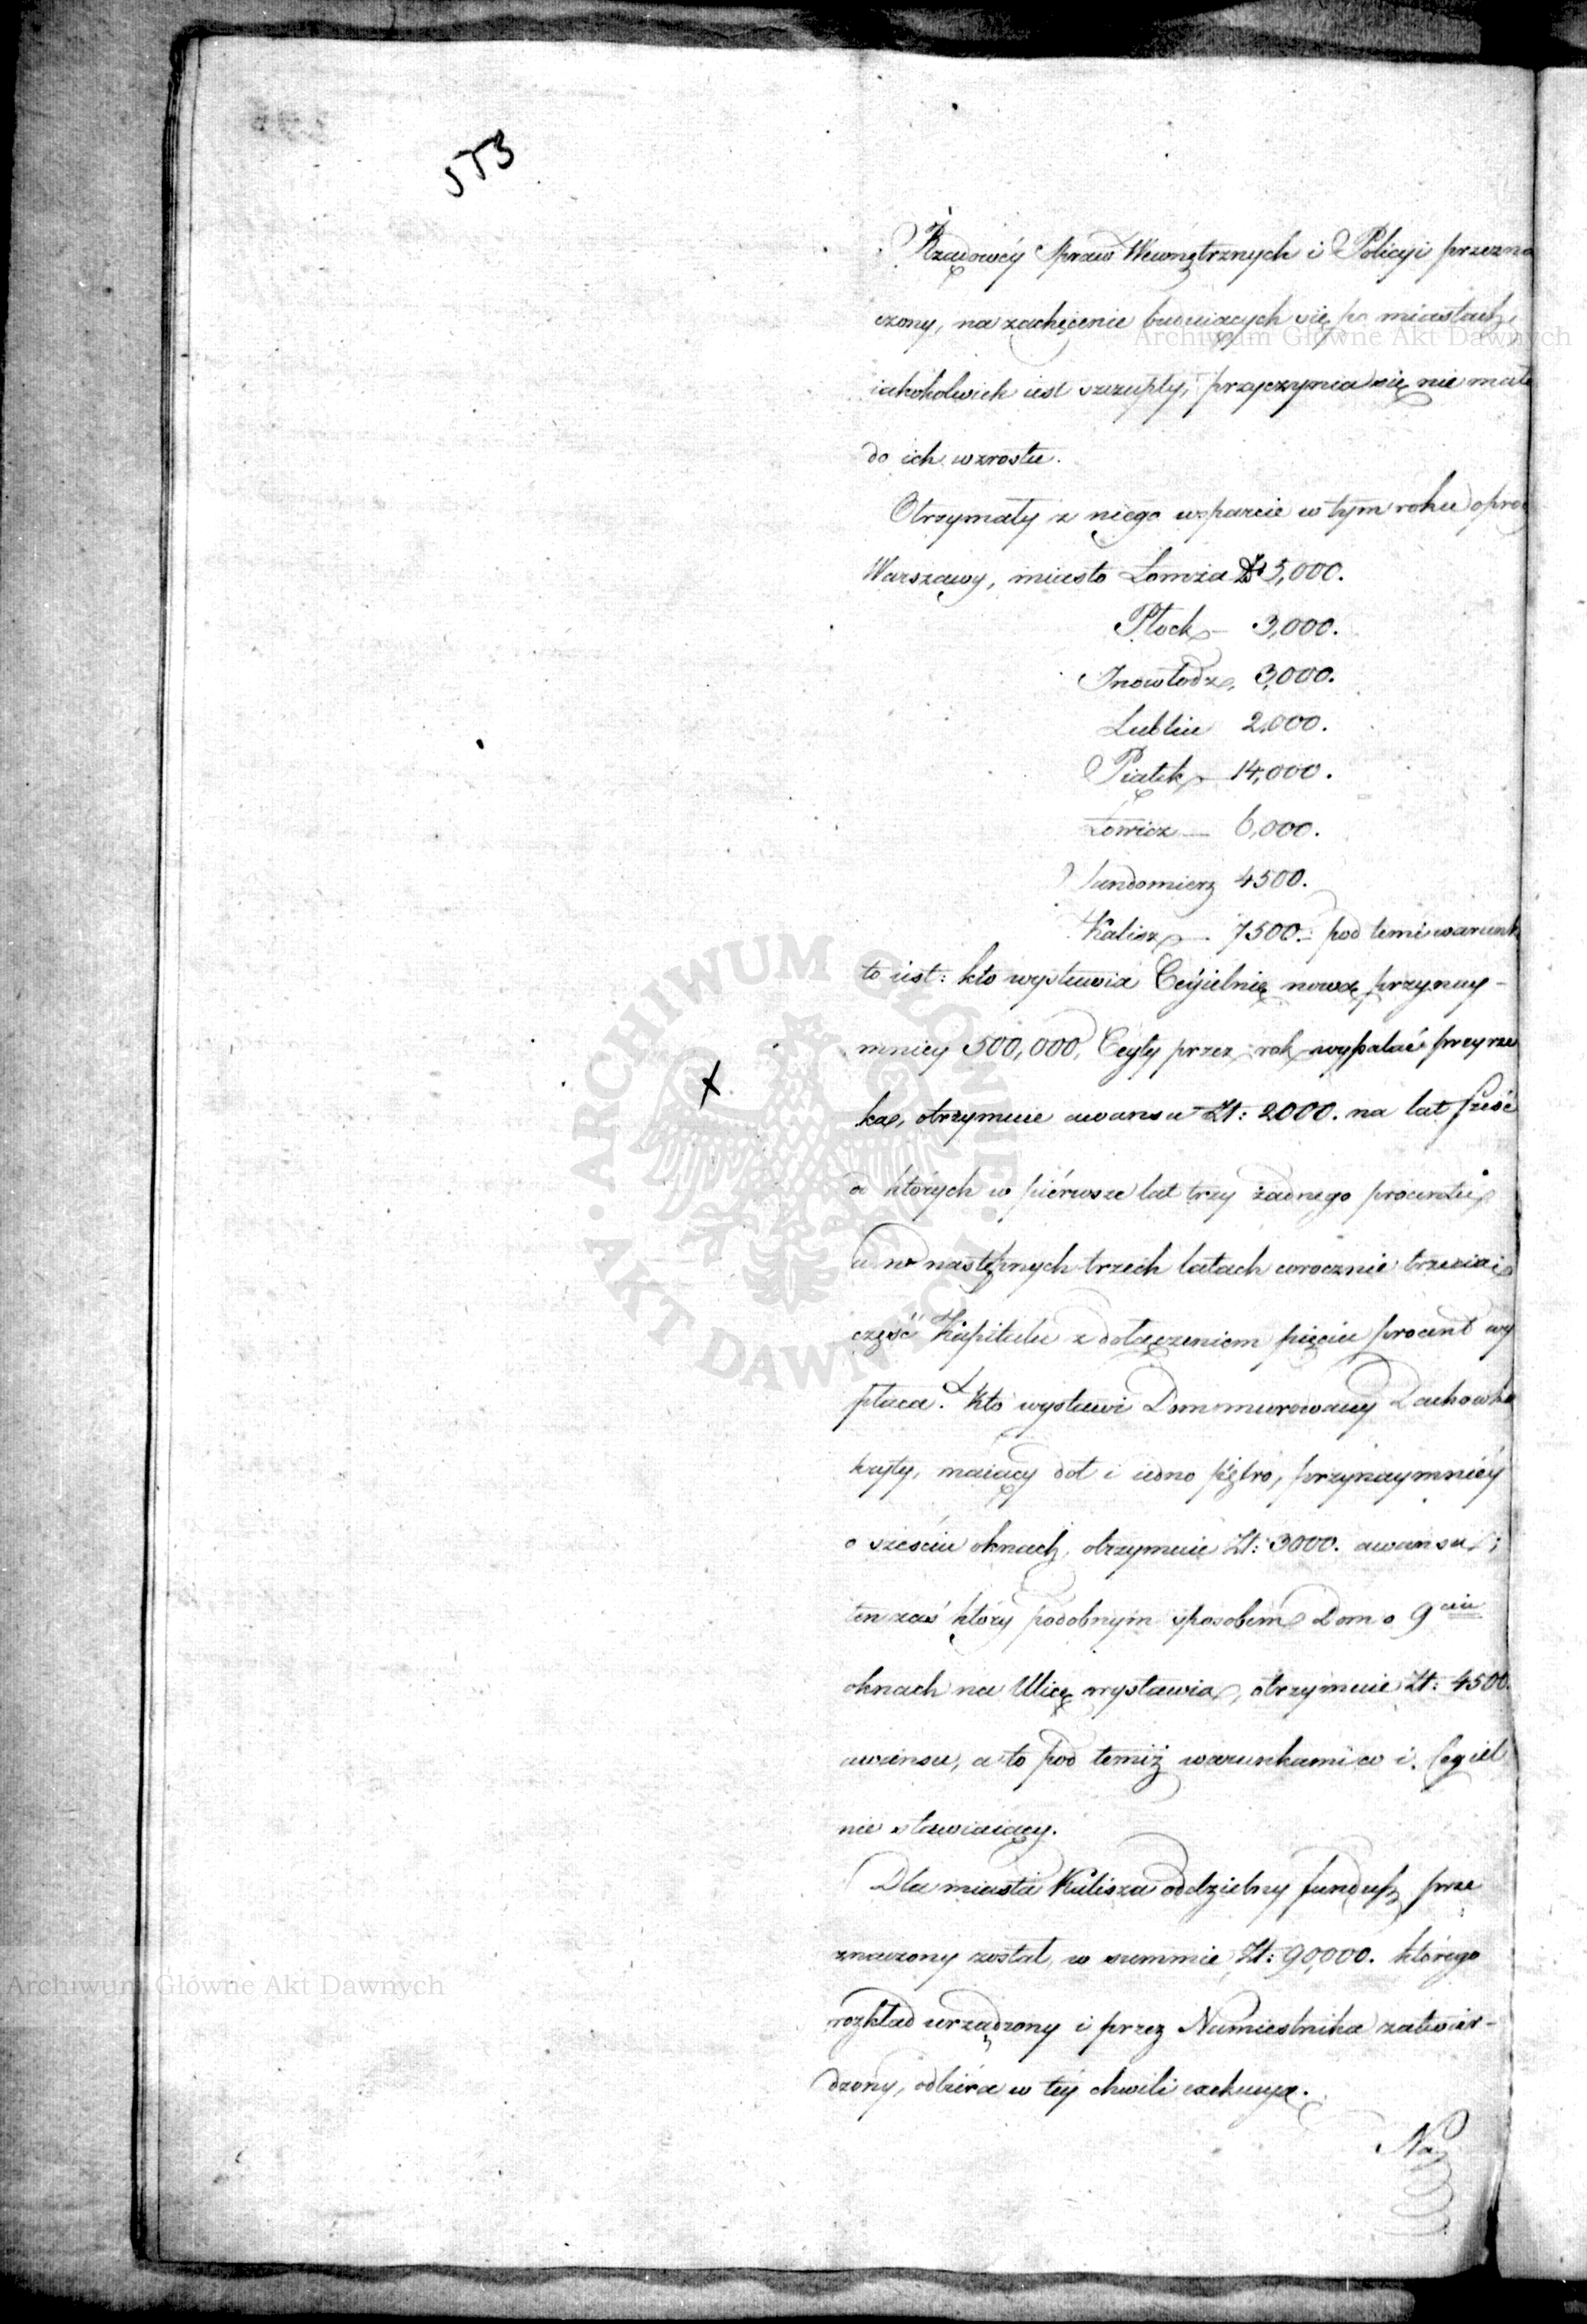 553
Rządowéy Spraw Wewnętrznych i Policyi przezna
czony, na zachęcenie buduiących się po miastach,
iakokolwiek iest szczupły, przyczynia się nie mało
do ich wzrostu.
Otrzymały z niego wsparcie w tym roku opró
Warszawy, miasto Łomża Zł 5,000.
Płock — 3,000.
Inowłodz, 3,000.
Lublin 2,000.
Piątek — 14,000.
Łowicz — 6,000.
Sandomierz 4500.
Kalisz — 7500. pod temi warunk
to iest: kto wystawia Cegielnię nową przynay-
mniey 500,000, Cegły przez rok wypalać przyrze
ka, otrzymuie awansu Zł: 2000. na lat sześć
od których w piérwsze lat trzy żadnego procentu
a w następnych trzech latach corocznie trzecią
część Kapitału z dołączeniem pięciu procent wy
płaca. Kto wystawi Dom murowany Dachówką
kryty, maiący dół i iedno piętro, przynaymniéy
o sześciu oknach, otrzymuie Zł: 3000. awansu;
ten zaś który podobnym sposobem Dom o 9ciu
oknach na Ulicę wystawia, otrzymuie Zł: 4500
awansu, a to pod temiż warunkami co i Cegiel
nie stawiaiący.
Dla miasta Kalisza oddzielny fundusz prze
znaczony został, w summie Zł: 90,000. którego
rozkład urządzony i przez Namiestnika zatwier-
dzony, odbiéra w téy chwili exekucyą.
Na
Archiwum Główne Akt Dawnych
Archiwum Główne Akt Dawnych
ARCHIWUM GŁÓWNE
AKT DAWNYCH